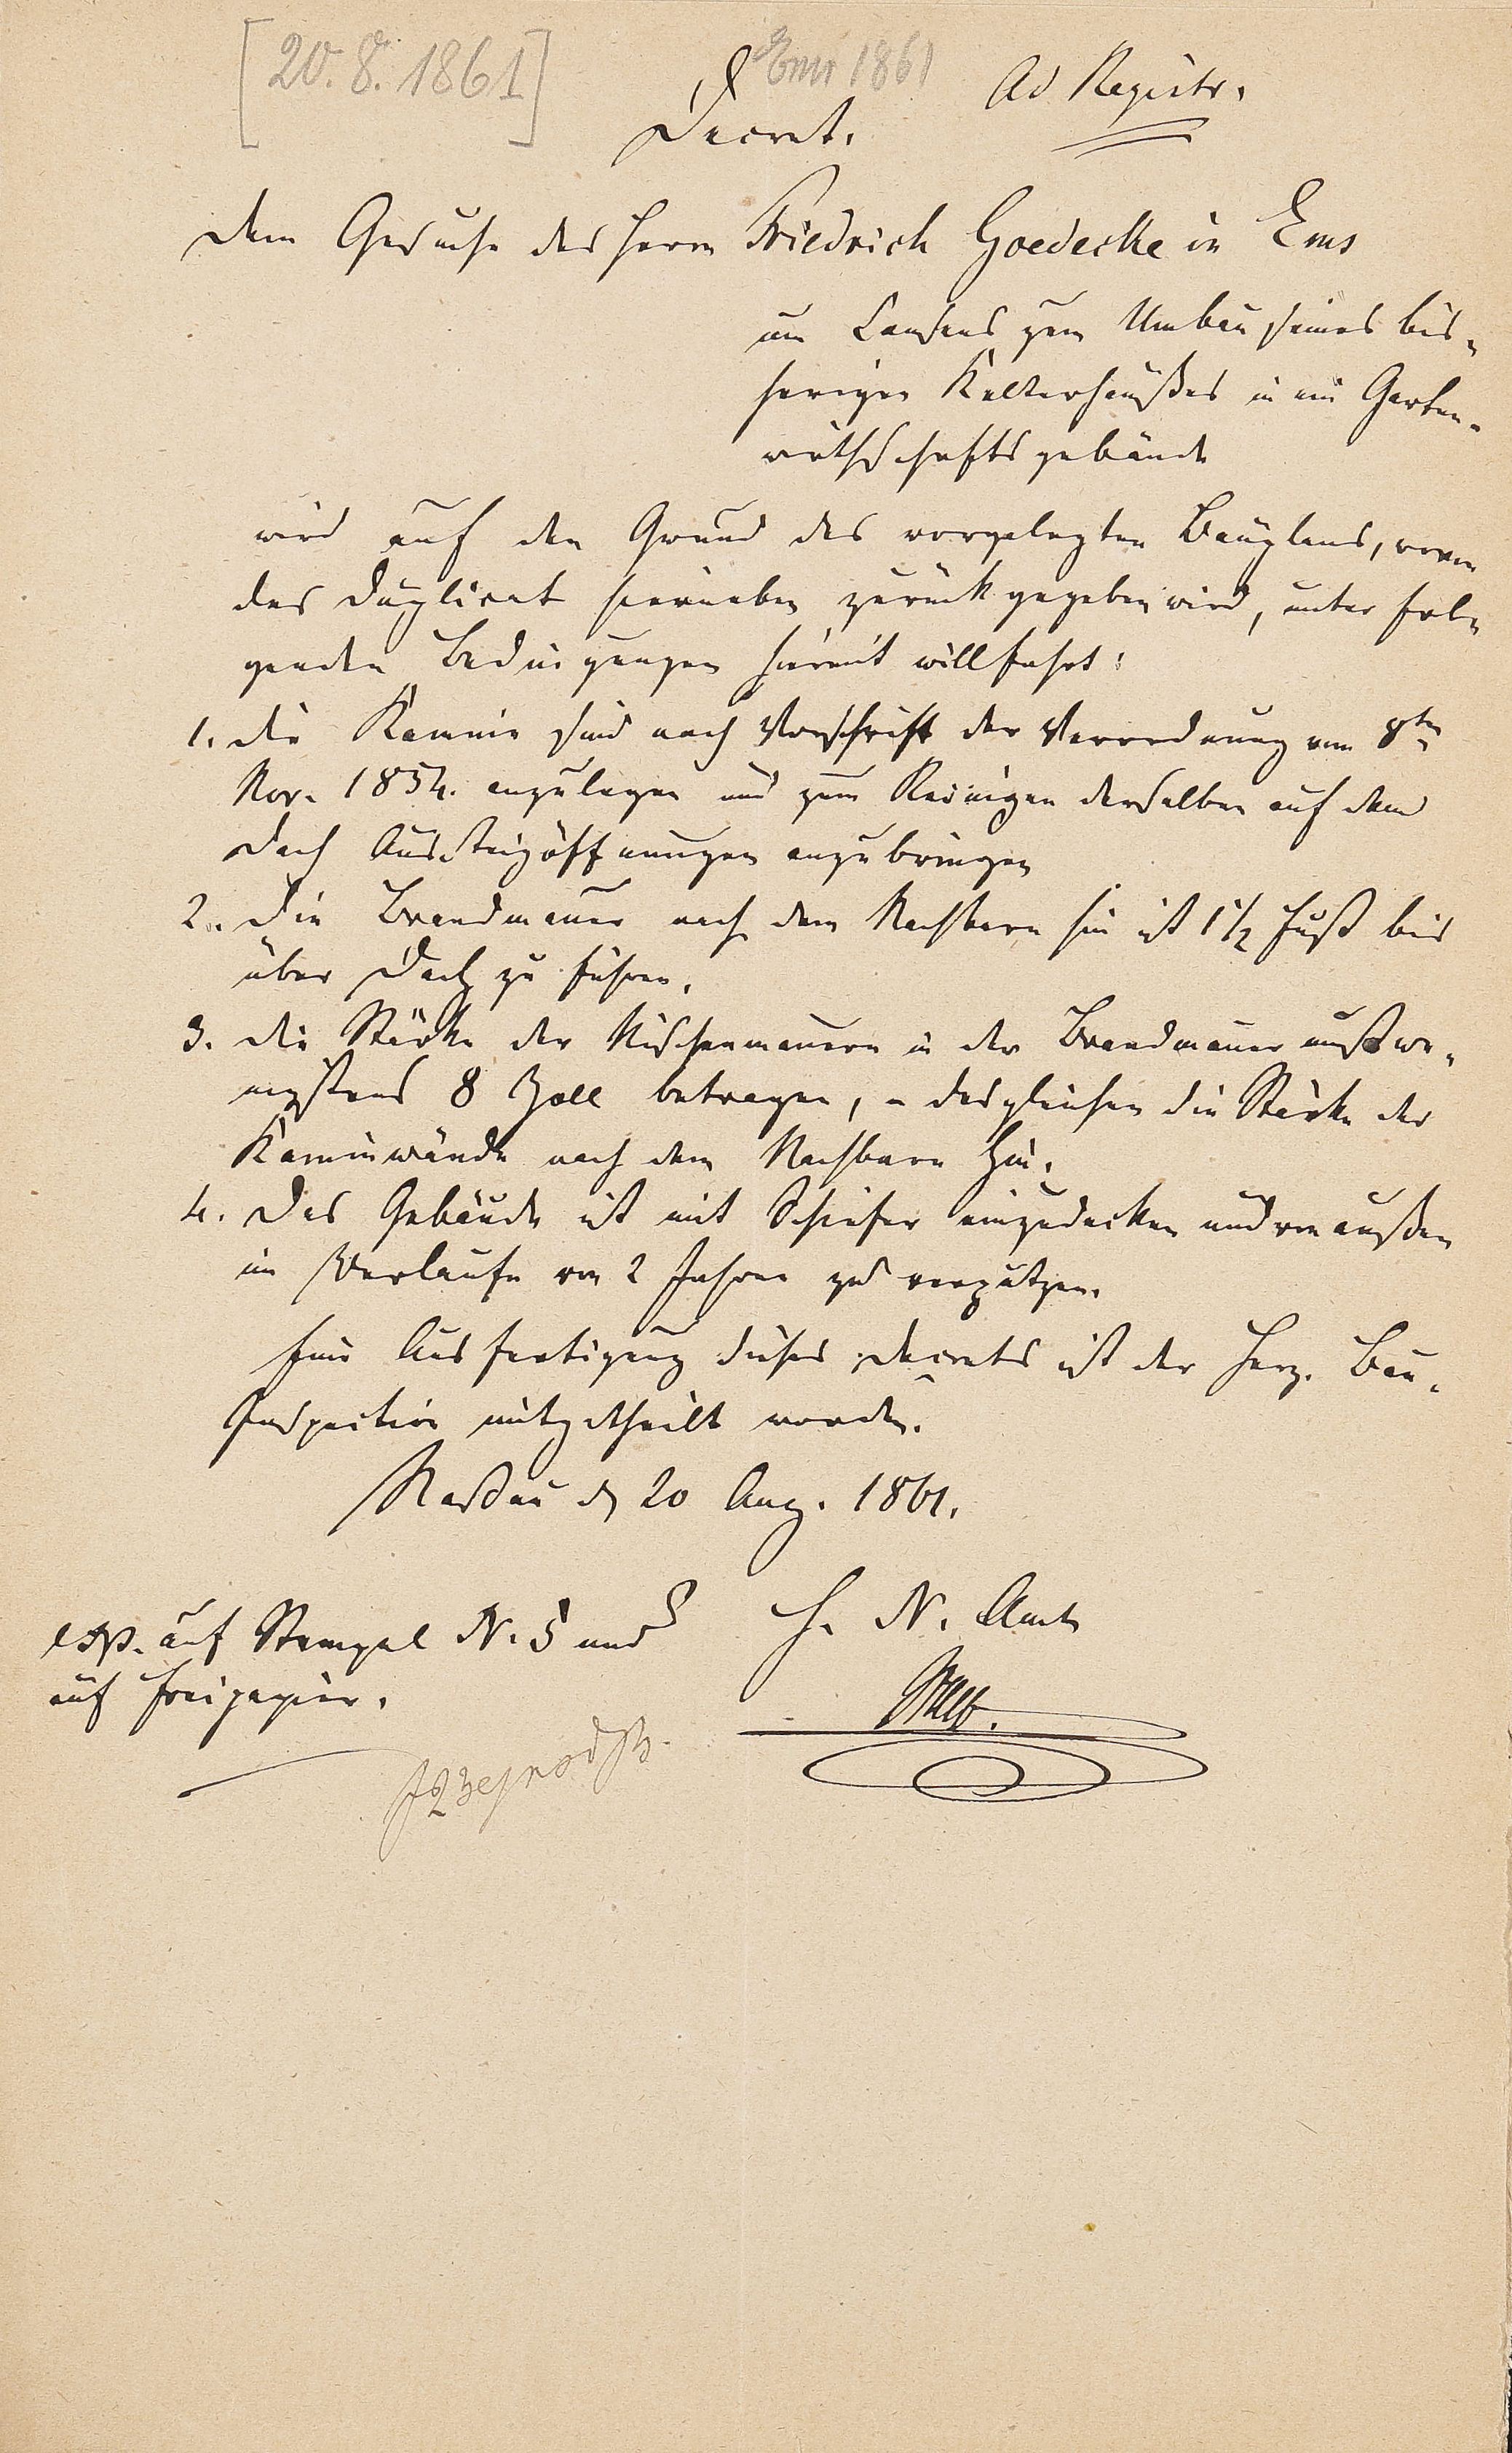 [20. 8. 1861]
Ems 1861
Ad Registr.
Decret.
Dem Gesuche des Herrn Friedrich Goedecke in Ems
um Consens zum Umbau seines bis-
herigen Kelterhaußes in ein Garten-
wirthschaftsgebäude
wird auf den Grund des vorgelegten Bauplans, wovon
das Duplicat hierneben zurückgegeben wird, unter fol-
genden Bedingungen hiermit willfahrt:
1. Die Kamine sind nach Vorschrift der Verordnung vom 8ten
Nov. 1854. anzulegen und zum Reinigen derselben auf dem
Dach Aussteigöffnungen anzubringen
2. Die Brandmauer nach dem Nachbarn hin ist 1 1/2 Fuß bis
über Dach zu führen.
3. Die Stärke der Nischenmauern in der Brandmauer muß we-
nigstens 8 Zoll betragen, - desgleichen die Stärke der
Kaminwände nach dem Nachbarn hin.
4. Das Gebäude ist mit Schiefer einzudecken und von außen
im Verlaufe von 2 Jahren zu verputzen.
Eine Ausfertigung dieses Decrets ist der Herz. Bau-
Inspection mitgetheilt worden.
Naßau d 20 Aug. 1861.
exp. auf Stempel N. 5 und
auf Freipapier.
H. N. Amt